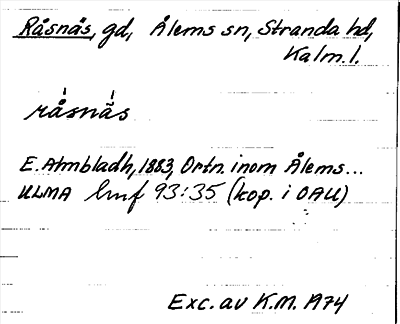 Råsnäs, gd, Ålems sn, Stranda hd,
Kalm. l.
råsnäs
E. Almbladh, 1883, Ortn. inom Ålems...
ULMA lmf 93:35 (kop. i OAU)
Exc. av K.M. A74